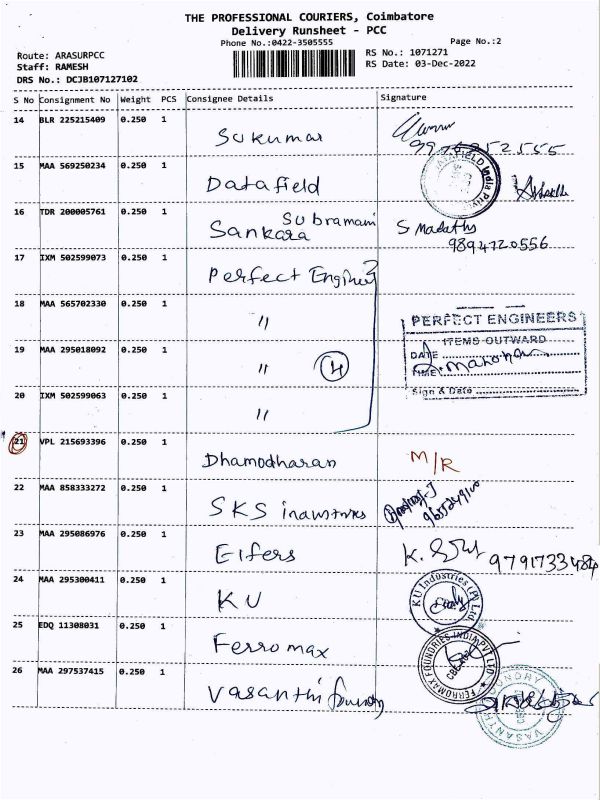 THE PROFESSIONAL COURIERS, Coimbatore
Delivery Runsheet - PCC
Phone No.:0422-3505555
Page No.:2
Route: ARASURPCC
Staff: RAMESH
DRS No.: DCJB107127102
RS No.: 1071271
RS Date: 03-Dec-2022
S No Consignment No Weight PCS Consignee Details Signature
14 BLR 225215409 0.250 1 Sukumar
15 MAA 569250234 0.250 1 Datafield
16 TDR 200005761 0.250 1 Sankara Subramani S Madathy
9894720556
17 IXM 502599073 0.250 1 Perfect Engineer
18 MAA 565702330 0.250 1 "
PERFECT ENGINEERS
ITEMS OUTWARD
DATE
TIME
Sign & Date
19 MAA 295018092 0.250 1 " 4
20 IXM 502599063 0.250 1 "
21 VPL 215693396 0.250 1 Dhamodharan M/R
22 MAA 858333272 0.250 1 SKS industries
23 MAA 295086976 0.250 1 Eifers
24 MAA 295300411 0.250 1 KU
KU Industries (P) Ltd.
25 EDQ 11308031 0.250 1 Ferromax
FERROMAX FOUNDRIES INDIA PVT LTD
26 MAA 297537415 0.250 1 Vasanthi foundry
VASANTHI FOUNDRY